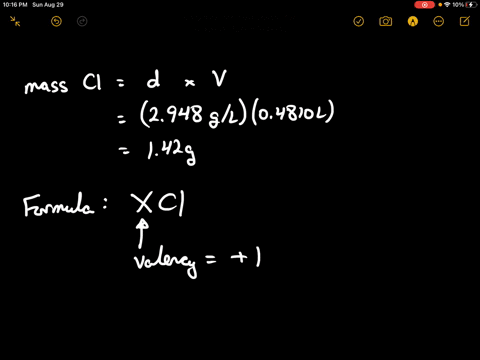 10:16 PM Sun Aug 29
10%
mass Cl = d x V
= (2.948 g/L)(0.4810L)
= 1.42g
Formula: XCl
valency = +1